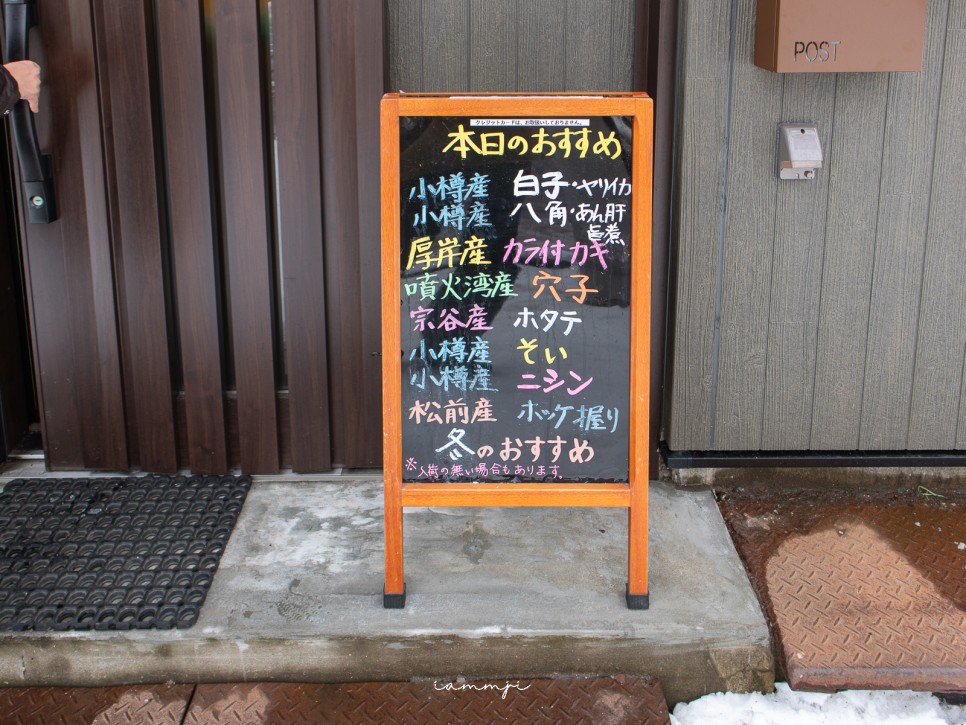 POST
クレジットカードは、お取扱いしておりません。
本日のおすすめ
小樽産 白子・ヤリイカ
小樽産 八角・あん肝
煮
厚岸産 カラ付カキ
噴火湾産 穴子
宗谷産 ホタテ
小樽産 そい
小樽産 ニシン
松前産 ホッケ握り
冬のおすすめ
※入荷の無い場合もあります。
iammji